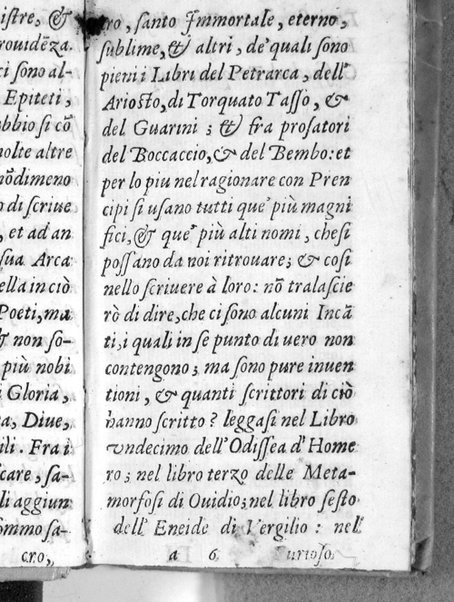 istre, &
rouidēza.
ci sono al-
Epiteti,
bbio si cō
nolte altre
nōdimeno
n di scriue
, et ad an
sua Arca
ella in ciò
Poeti, ma
& non so-
più nobi
i Gloria,
ta, Diue,
ili. Fra i
care, sa-
li aggiun
ommo sa-
cro,
cro, santo Immortale, eterno,
sublime, & altri, de' quali sono
pieni i Libri del Petrarca, dell'
Ariosto, di Torquato Tasso, &
del Guarini; & fra prosatori
del Boccaccio, & del Bembo: et
per lo piu nel ragionare con Pren
cipi si usano tutti que' più magni
fici, & que' più alti nomi, che si
possano da noi ritrouare; & cosi
nello scriuere à loro: nō tralascie
rò di dire, che ci sono alcuni Incā
ti, i quali in se punto di uero non
contengono; ma sono pure inuen
tioni, & quanti scrittori di ciò
hanno scritto? leggasi nel Libro
vndecimo dell' Odissea d' Home
ro; nel libro terzo delle Meta-
morfosi di Ouidio; nel libro sesto
dell' Eneide di Vergilio: nel
a 6 Furioso